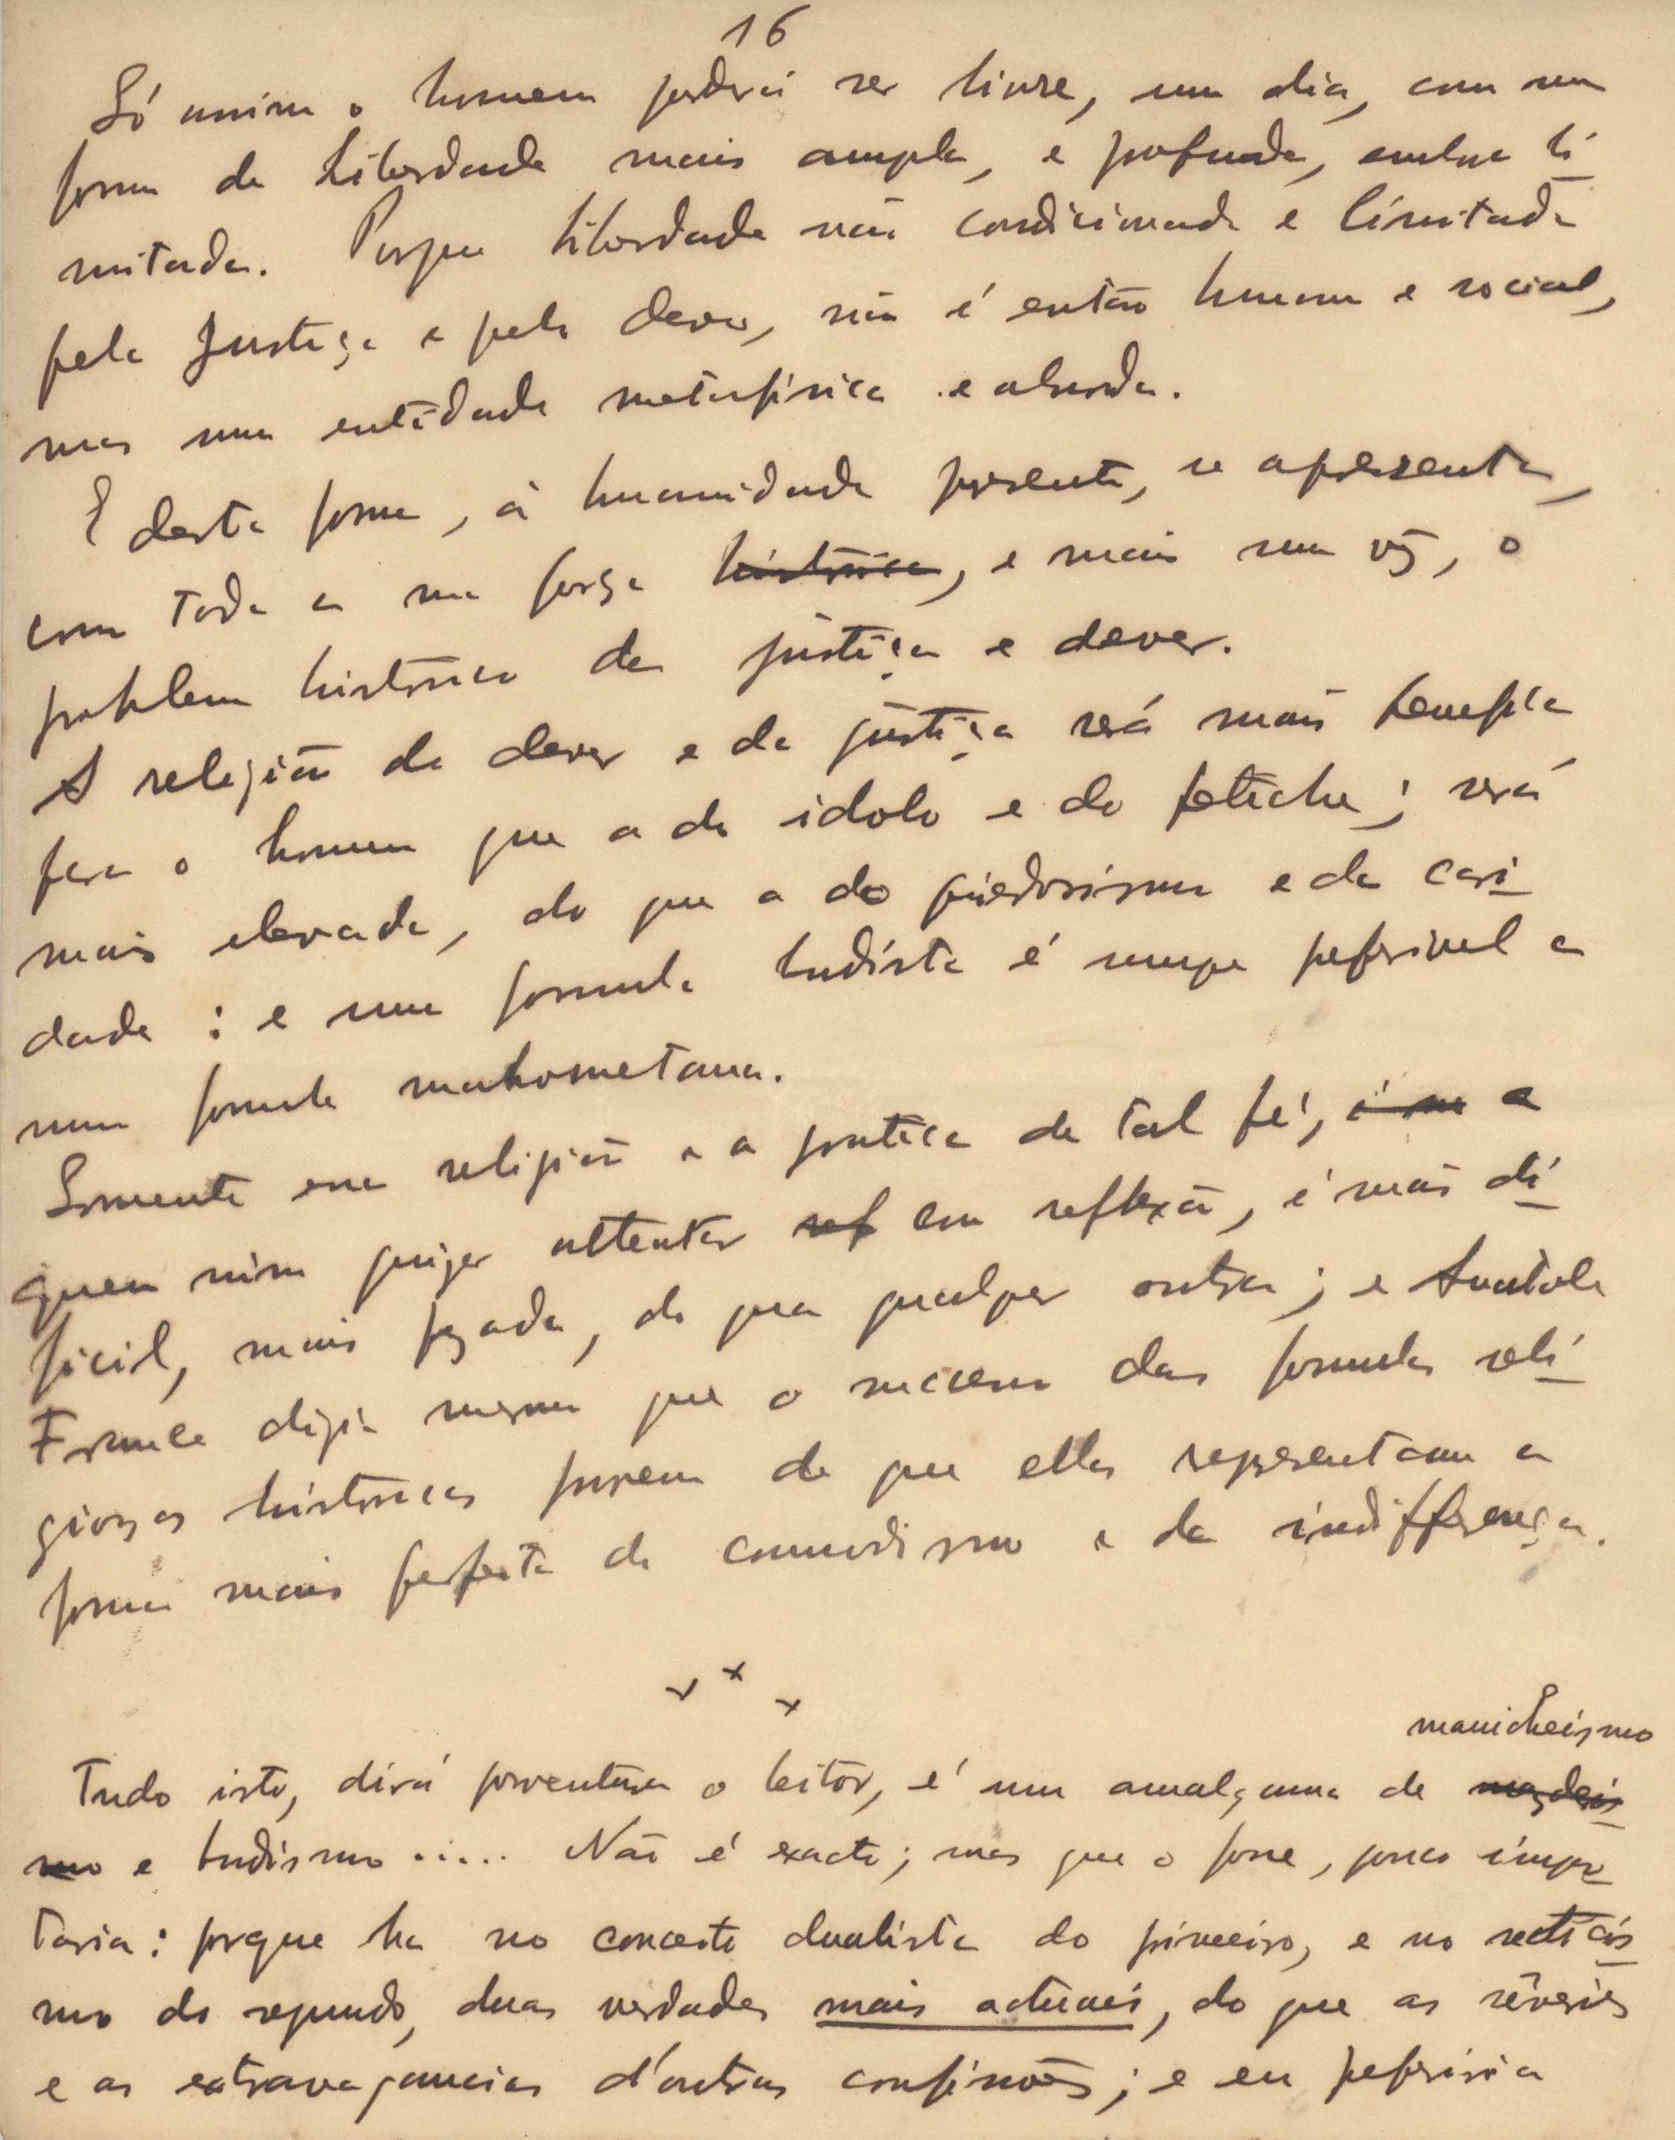 16
Só assim o homem poderá ser livre, um dia, com uma
forma de Liberdade mais ampla, e profunda, embora li
mitada. Porque liberdade não condicionada e limitada
pela Justiça e pelo dever, não é então humana e social,
mas uma entidade metafísica e absurda.
E desta forma, á humanidade presente, se apresenta,
com toda a sua força historica, e mais uma vez, o
problema historico da justiça e dever.
A religião do dever e da justiça será mais benefica
para o homem que a do idolo e do fetiche; será
mais elevada, do que a do piedosismo e da cari
dade : e uma formula budista é sempre preferivel a
uma formula mahometana.
Somente essa religião e a pratica de tal fé, a
quem nisso quizer attentar com reflexão, é mais di
ficil, mais pezada, do que qualquer outra; e Anatole
France dizia mesmo que o successo das formulas reli
giosas historicas provem de que ellas representam a
forma mais perfeita do commodismo e da indifferença.
x x x
manicheismo
Tudo isto, dirá porventura o leitor, é um amalgama de mazdeis
mo e budismo ..... Não é exacto; mas que o fosse, pouco impor
taria: porque ha no conceito dualista do primeiro, e no
mo do segundo, duas verdades mais actuaes, do que as rêveries
e as extravagancias d'outras confissões; e eu preferiria